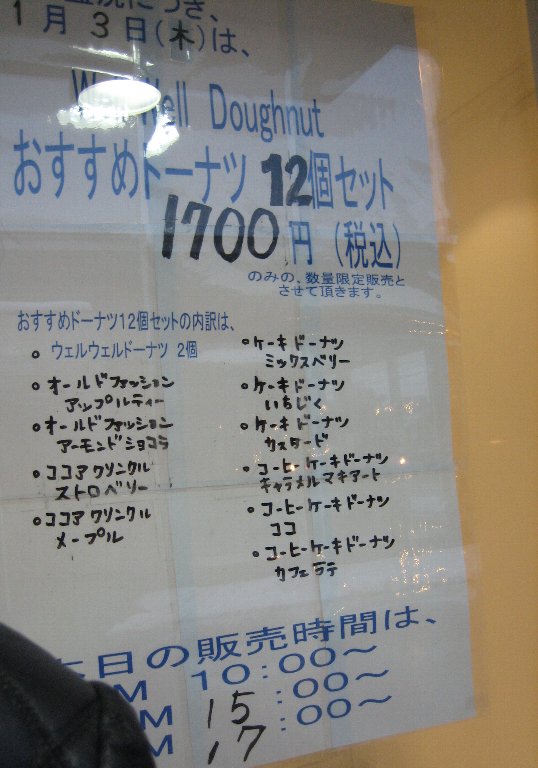 につき、
1月3日(木)は、
Well Well Doughnut
おすすめドーナツ 12個セット
1700円(税込)
のみの、数量限定販売と
させて頂きます。
おすすめドーナツ12個セットの内訳は、
○ ウェルウェルドーナツ 2個
○ オールドファッション
アップルティー
○ オールドファッション
アーモンドショコラ
○ ココアクリンクル
ストロベリー
○ ココアクリンクル
メープル
○ ケーキドーナツ
ミックスベリー
○ ケーキドーナツ
いちじく
○ ケーキドーナツ
カスタード
○ コーヒーケーキドーナツ
キャラメルマキアート
○ コーヒーケーキドーナツ
ココ
○ コーヒーケーキドーナツ
カフェラテ
本日の販売時間は、
M 10:00〜
M 15:00〜
M 17:00〜